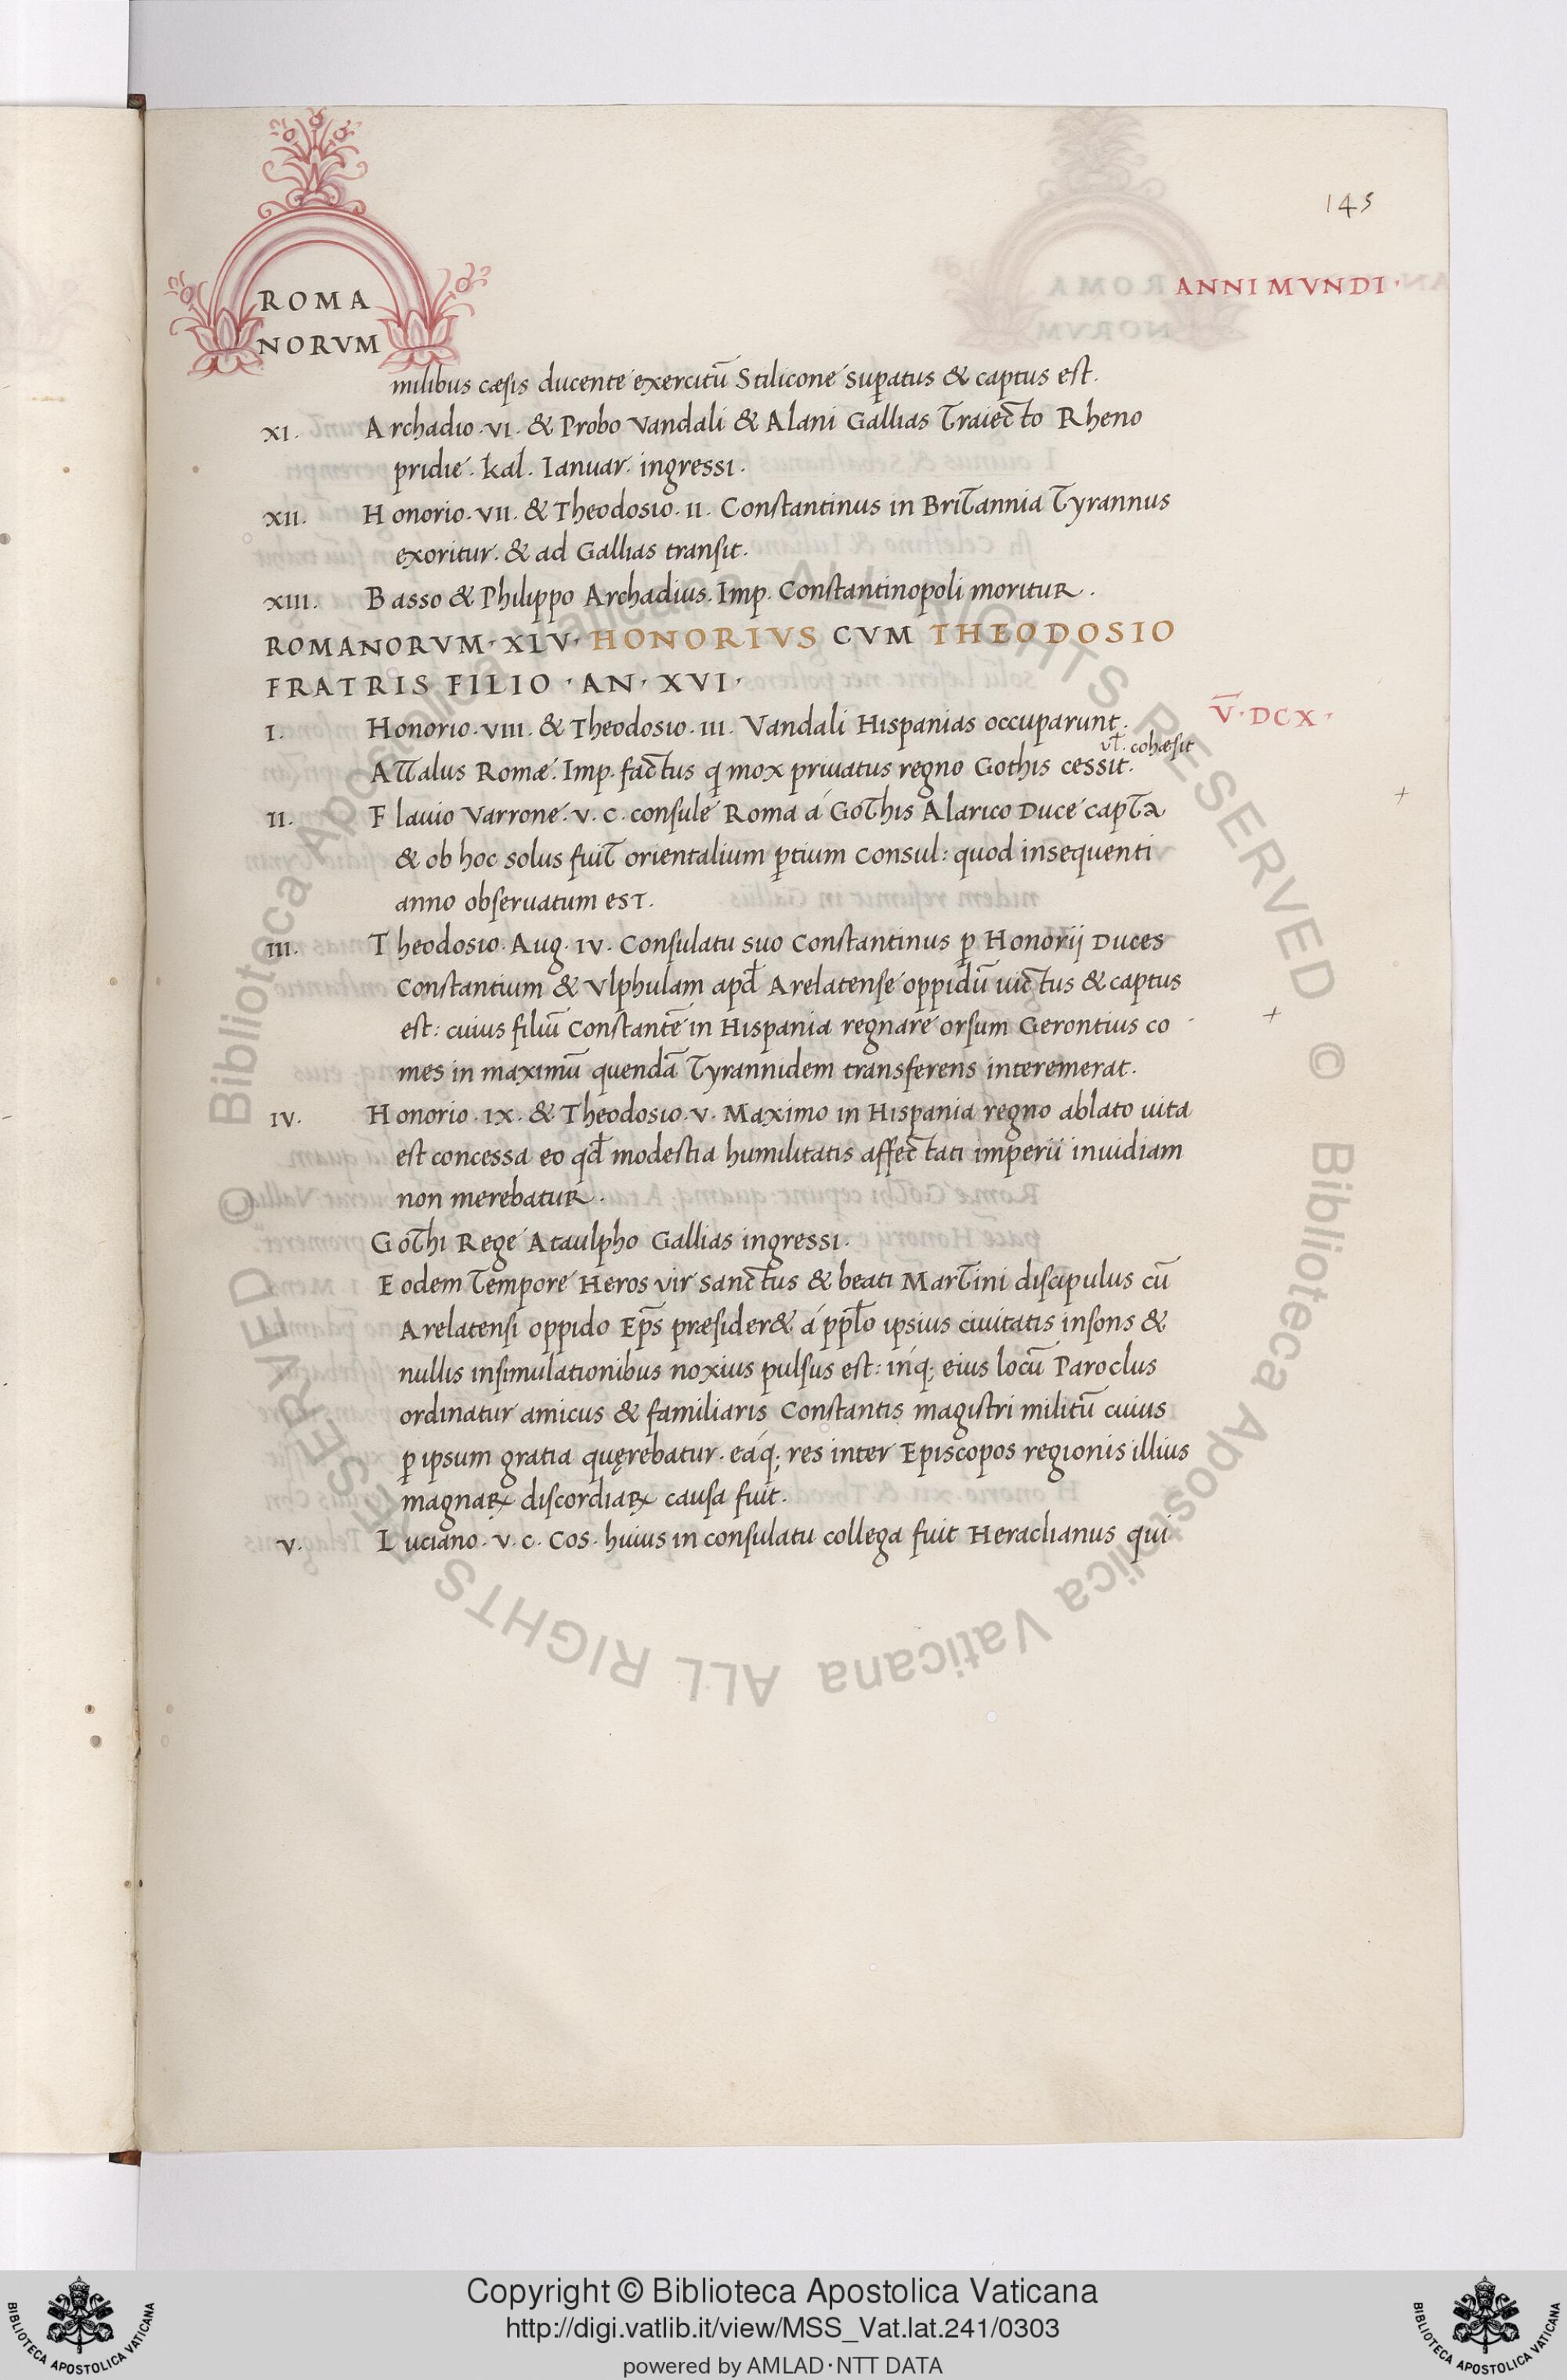 145
ROMA
NORVM
ANNI MVNDI·
milibus cæsis ducente exercitū Stilicone supatus & captus est.
XI. Archadio·VI· & Probo Vandali & Alani Gallias Traiecto Rheno
pridie. kal. Ianuar. ingressi.
XII. Honorio·VII· & Theodosio·II· Constantinus in Britannia Tyrannus
exoritur. & ad Gallias transit.
XIII. Basso & Philippo Archadius. Imp. Constantinopoli moritur.
ROMANORVM·XLV·HONORIVS CVM THEODOSIO
FRATRIS FILIO·AN·XVI·
I. Honorio·VIII· & Theodosio·III· Vandali Hispanias occuparunt.
V̅·DCX·
vł. cohæsit
Attalus Romæ. Imp. factus q mox priuatus regno Gothis cessit.
II. Flauio Varrone·v.c. consule Roma á Gothis Alarico Duce capta
& ob hoc solus fuit orientalium ꝑtium consul: quod insequenti
anno obseruatum est.
III. Theodosio. Aug. IV. Consulatu suo Constantinus ꝑ Honorij Duces
Constantium & Vlphulam apđ Arelatense oppidū uictus & captus
est: cuius filiū Constantē in Hispania regnare orsum Gerontius co
mes in maximū quendā Tyrannidem transferens interemerat.
IV. Honorio·IX· & Theodosio·V· Maximo in Hispania regno ablato uita
est concessa eo qđ modestia humilitatis affectati imperii inuidiam
non merebatur.
Gothi Rege Ataulpho Gallias ingressi.
Eodem Tempore Heros vir sanctus & beati Martini discipulus cū
Arelatensi oppido Ep̄s præsider& á ppło ipsius ciuitatis insons &
nullis insimulationibus noxius pulsus est: inq; eius locū Paroclus
ordinatur amicus & familiaris Constantis magistri militū cuius
ꝑ ipsum gratia quęrebatur. eáq; res inter Episcopos regionis illius
magnaꝝ discordiaꝝ causa fuit.
V. Luciano·v.c. Cos. huius in consulatu collega fuit Heraclianus qui
© Biblioteca Apostolica Vaticana ALL RIGHTS RESERVED © Biblioteca Apostolica Vaticana ALL RIGHTS RESERVED
Copyright © Biblioteca Apostolica Vaticana
http://digi.vatlib.it/view/MSS_Vat.lat.241/0303
powered by AMLAD·NTT DATA
BIBLIOTECA APOSTOLICA VATICANA
BIBLIOTECA APOSTOLICA VATICANA